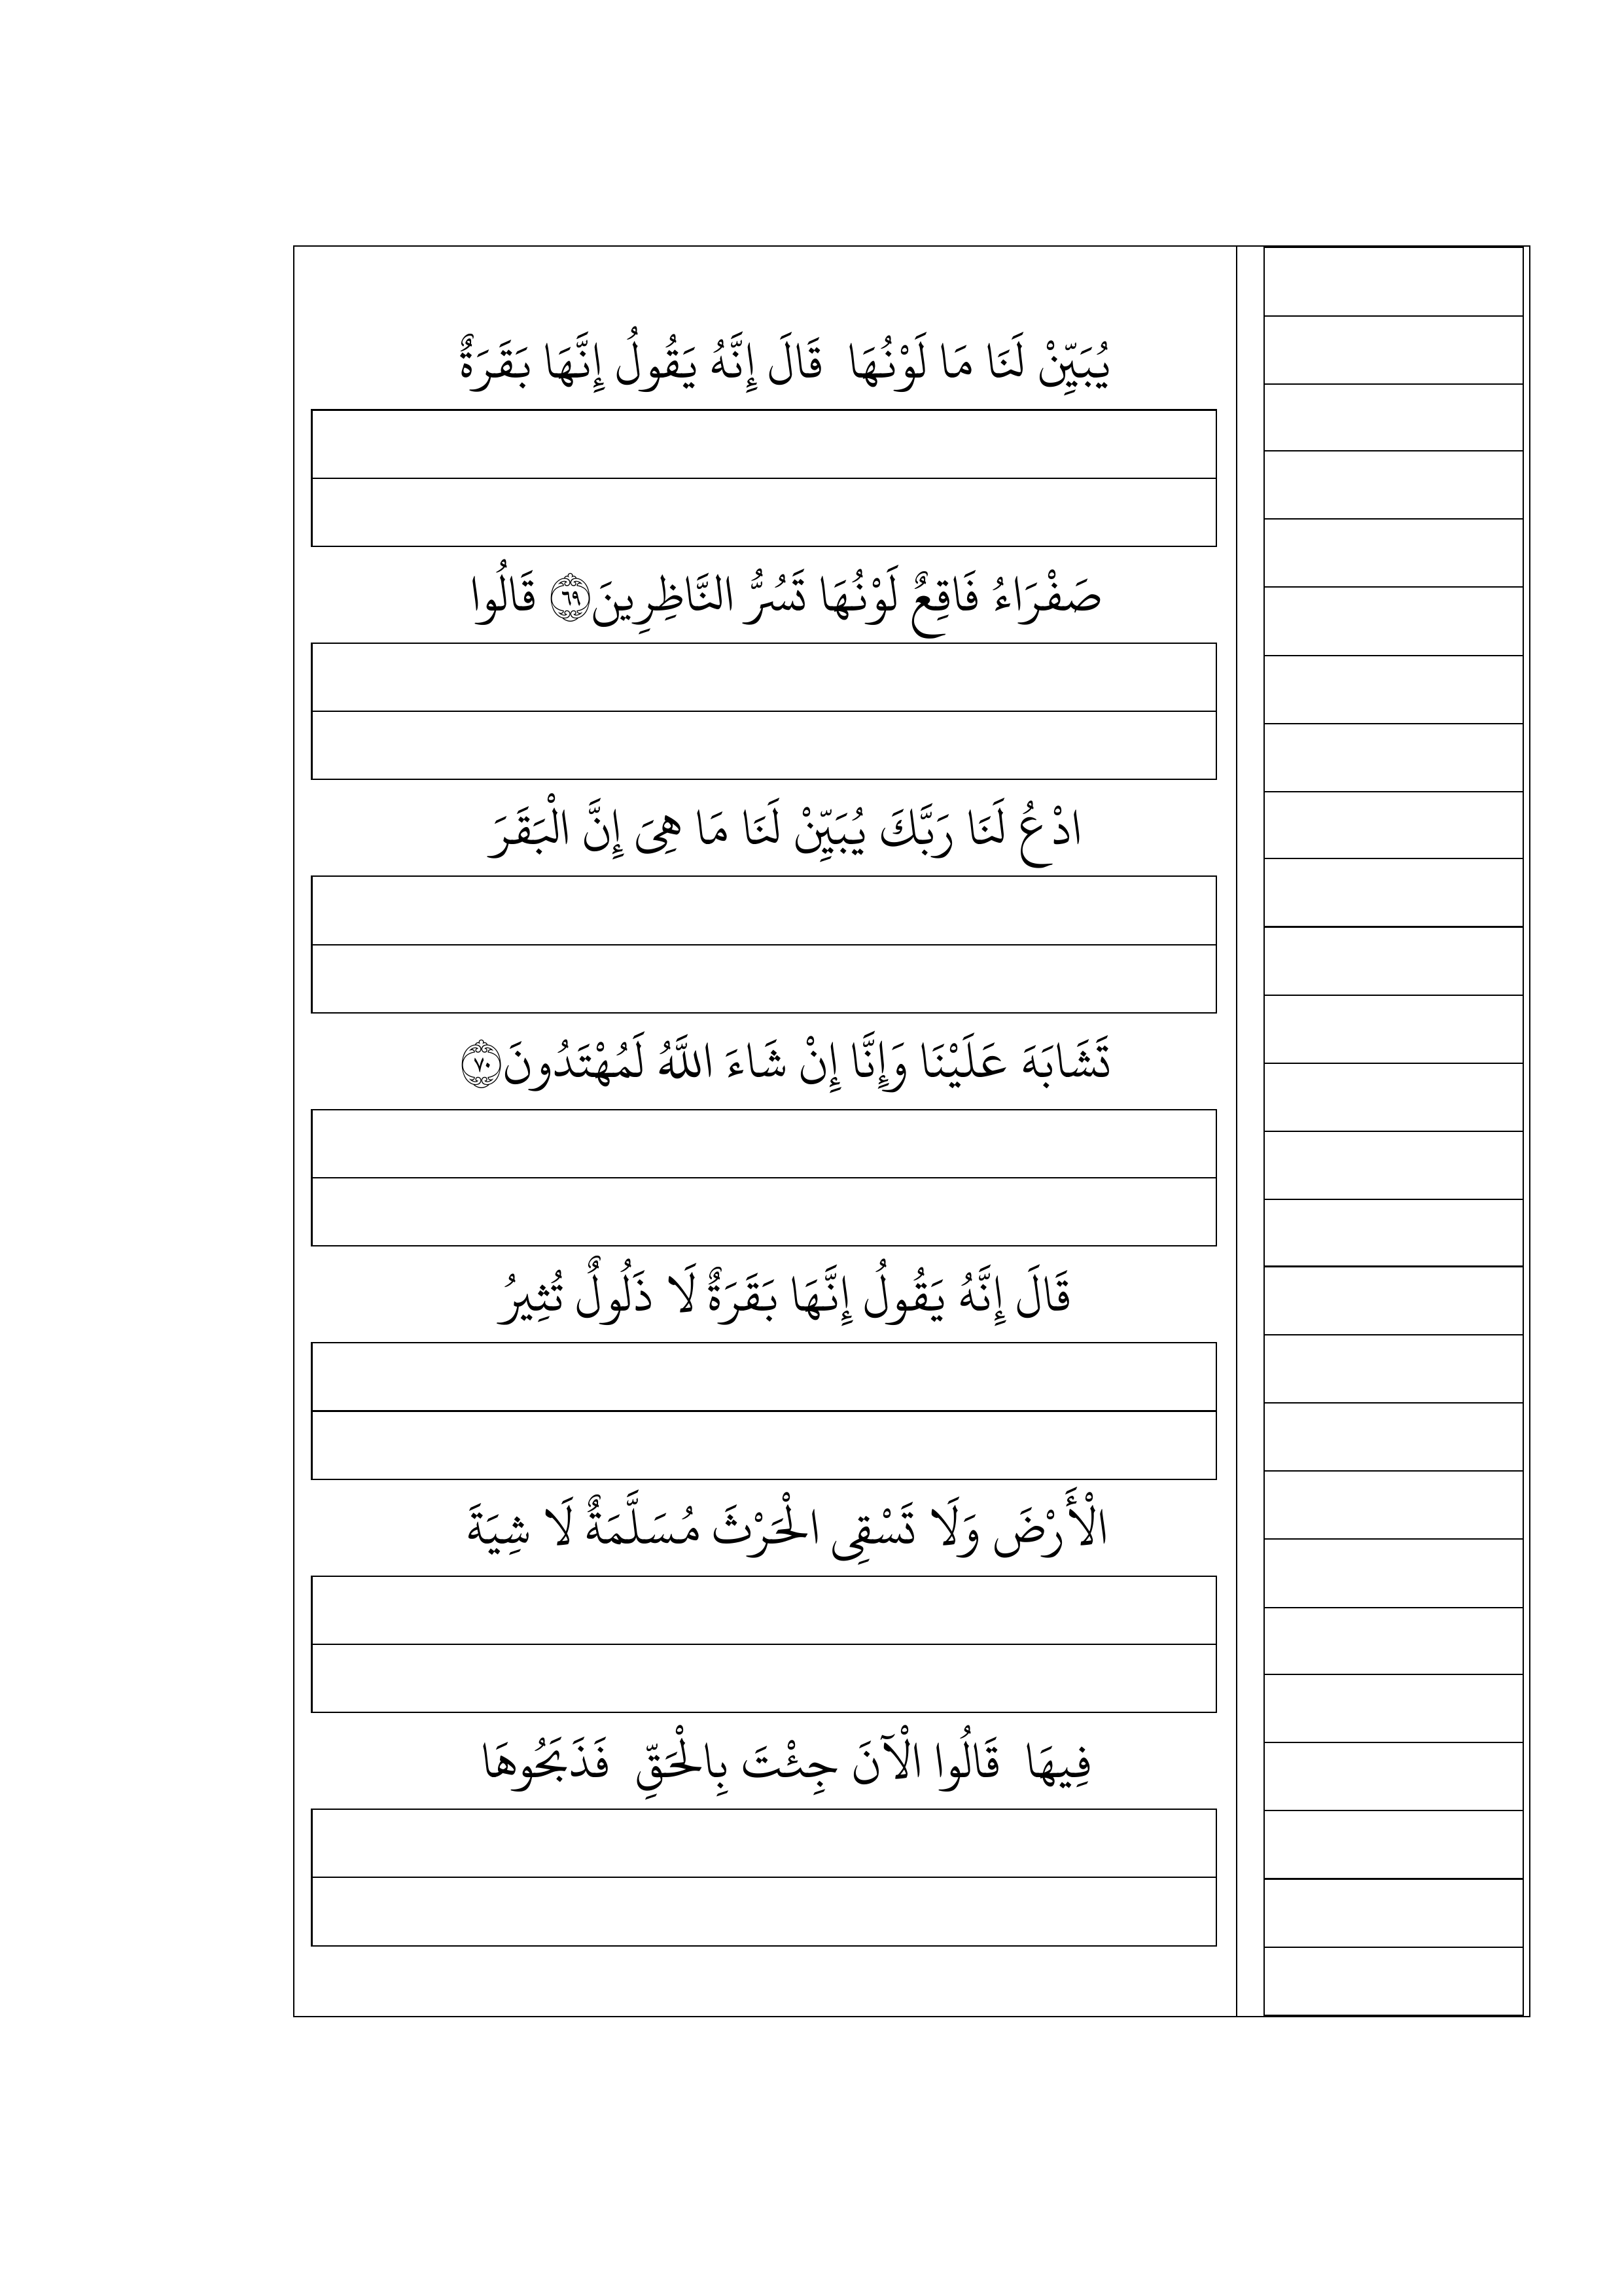 يُبَيِّنْ لَنَا مَا لَوْنُهَا قَالَ إِنَّهُ يَقُولُ إِنَّهَا بَقَرَةٌ
صَفْرَاءُ فَاقِعٌ لَوْنُهَا تَسُرُّ النَّاظِرِينَ ٦٩ قَالُوا
ادْعُ لَنَا رَبَّكَ يُبَيِّنْ لَنَا مَا هِىَ إِنَّ الْبَقَرَ
تَشَابَهَ عَلَيْنَا وَإِنَّا إِنْ شَاءَ اللَّهُ لَمُهْتَدُونَ ٧٠
قَالَ إِنَّهُ يَقُولُ إِنَّهَا بَقَرَةٌ لَا ذَلُولٌ تُثِيرُ
الْأَرْضَ وَلَا تَسْقِى الْحَرْثَ مُسَلَّمَةٌ لَا شِيَةَ
فِيهَا قَالُوا الْآنَ جِئْتَ بِالْحَقِّ فَذَبَحُوهَا